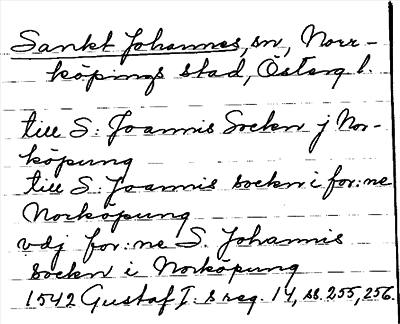 Sankt Johannes, sn, Norr-
köpings stad, Österg l.
till S: Joannis Sockn j Nor-
köpung
till S: Joannis sockn i for:ne
Norköpung
vdj for:ne S. Johannis
sockn i Norköpung
1542 Gustaf I:s reg. 14, ss. 255, 256.